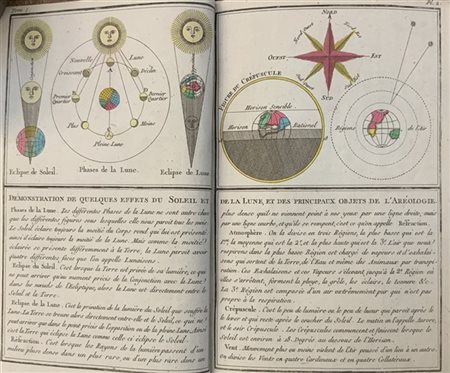 Tome I.
Pl. 2.
NORD
Nord Ouest
Nord Est
OUEST
EST
Sud Ouest
Sud Est
SUD
Nouvelle Lune
Croissant
Déclin
Premier Quartier
Dernier Quartier
Plus
Moins
Pleine Lune
A
Eclipse de Soleil.
Phases de la Lune.
Eclipse de Lune
FIGURE DU CRÉPUSCULE
Horison Sensible.
Horison Rationel
Régions de l'Air
DEMONSTRATION DE QUELQUES EFFETS DU SOLEIL ET
Phases de la Lune. Les différentes Phases de la Lune ne sont autre chose
que les différentes figures sous lesquelles elle nous paroît tous les mois.
Le Soleil éclaire toujours la moitié du Corps rond qui lui est présenté:
ainsi il éclaire toujours la moitié de la Lune. Mais comme la moitié
éclairée se présente différemment à la Terre, la Lune paroît avoir
quatre différentes faces que l'on appelle Lunaisons.
Eclipse du Soleil. C'est lorsque la Terre est privée de sa lumière, ce qui
ne peut arriver qu'au moment précis de la Conjonction avec la Lune
dans les nœuds de l'Ecliptique, alors la Lune est directement entre le
Soleil et la Terre.
Eclipse de la Lune. C'est la privation de la lumière du Soleil que souffre la
Lune. La Terre se trouve alors directement entre elle et le Soleil, ce qui ne
peut arriver que dans le point précis de l'opposition ou de la pleine Lune. Ainsi
c'est la Terre qui éclipse la Lune comme celle ci éclipse le Soleil.
Réfraction. C'est lorsque les Rayons de la lumière passent d'un
milieu plus dense dans un plus rare, ou d'un plus rare dans un
DE LA LUNE, ET DES PRINCIPAUX OBJETS DE L'AREOLOGIE.
plus dense qu'ils ne viennent point à nos yeux par une ligne droite, mais
par une ligne courbe, ou qu'ils se rompent, c'est ce qu'on appelle Réfraction.
Atmosphère. On la divise en trois Régions, la plus basse qui est la
1.re, la moyenne qui est la 2.e, et la plus haute qui est la 3.e L'air que nous
respirons dans la plus basse Région est chargé de vapeurs et d'exhalai-
sons qui sortent de la Terre, de l'Eau et même des Animaux par transpi-
ration. Ces Exhalaisons et ces Vapeurs s'élevant jusqu'à la 2.e Région où
elles s'arrêtent, forment la pluye, la grêle, les éclairs, le tonnerre &c.
La 3.e Région est composée d'un air extrêmement pur qui n'est pas
propre à la respiration.
Crépuscule. C'est le peu de lumière ou le peu de lueur que paroît après le
lever et qui reste après le coucher du Soleil. Le matin on l'appelle Aurore,
et le soir Crépuscule. Les Crépuscules commencent et finissent lorsque le
Soleil est environ à 18. Degrés au dessous de l'Horison.
Vent. Mouvement plus ou moins violent de l'Air poussé d'un lieu à un autre.
On divise les Vents en quatre Cardinaux et en quatre Collatéraux.